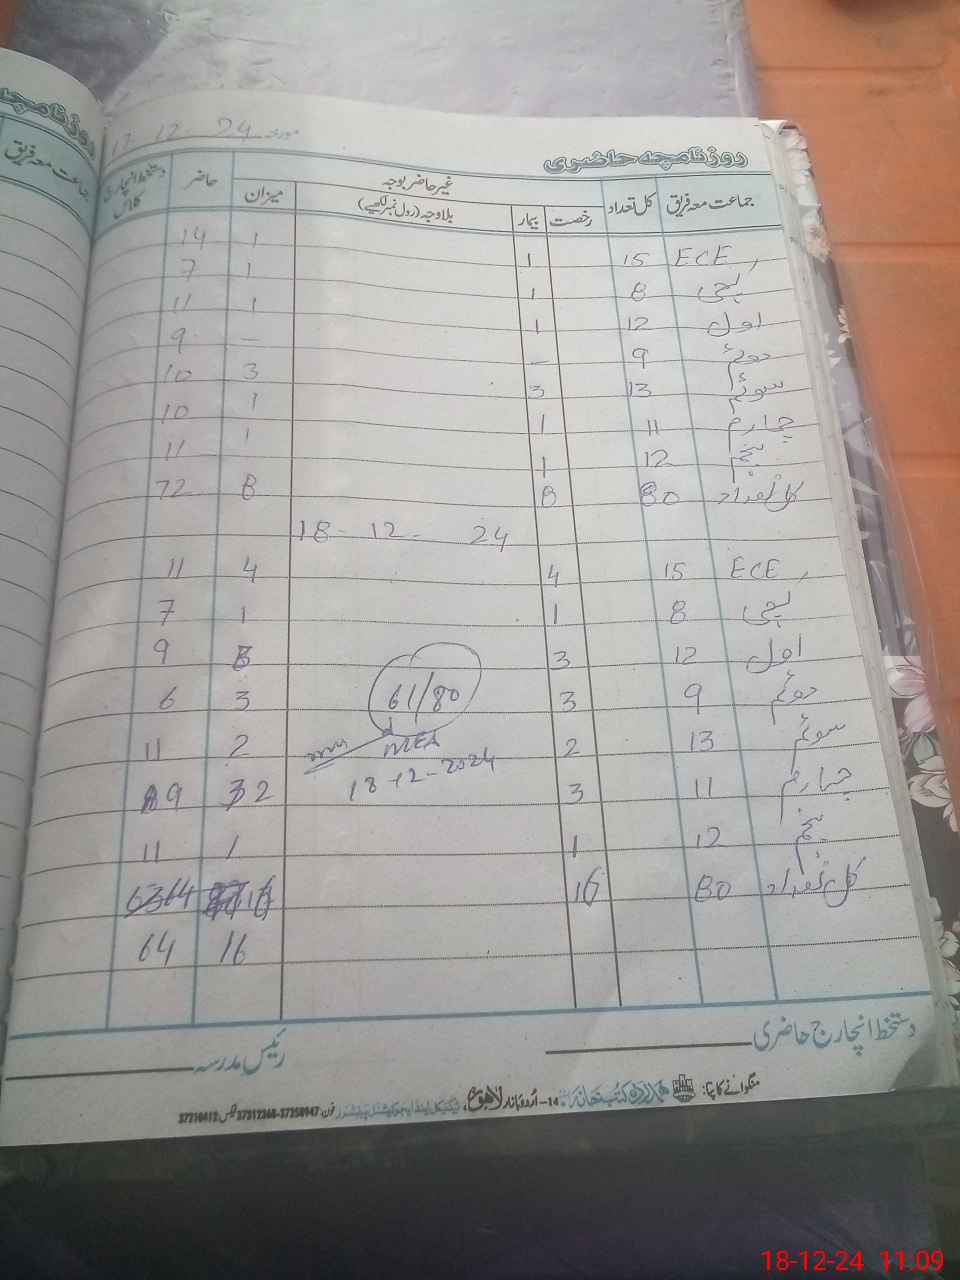 روزنامچہ حاضری مورخہ 17 12 24
جماعت معہ فریق کل تعداد غیر حاضر بوجہ حاضر دستخط انچارج کلاس
رخصت بیمار بلاوجہ (رول نمبر لکھیے) میزان
ECE 15 1 1 14
پکی 8 1 1 7
اول 12 1 1 11
دوئم 9 - - 9
سوئم 13 3 3 10
چہارم 11 1 1 10
پنجم 12 1 1 11
کل تعداد 80 8 8 72
18 - 12 - 24
ECE 15 4 4 11
پکی 8 1 1 7
اول 12 3 3 9
دوئم 9 3 3 6
سوئم 13 2 2 11
چہارم 11 3 2 9
پنجم 12 1 1 11
کل تعداد 80 16 16 64
16 64
61/80
MEA
18-12-2024
دستخط انچارج حاضری رئیس مدرسہ
منگوانے کا پتا: ہمدرد کتب خانہ 14- اُردو بازار لاہور
روزنامچہ
جماعت معہ فریق
18-12-24 11.09